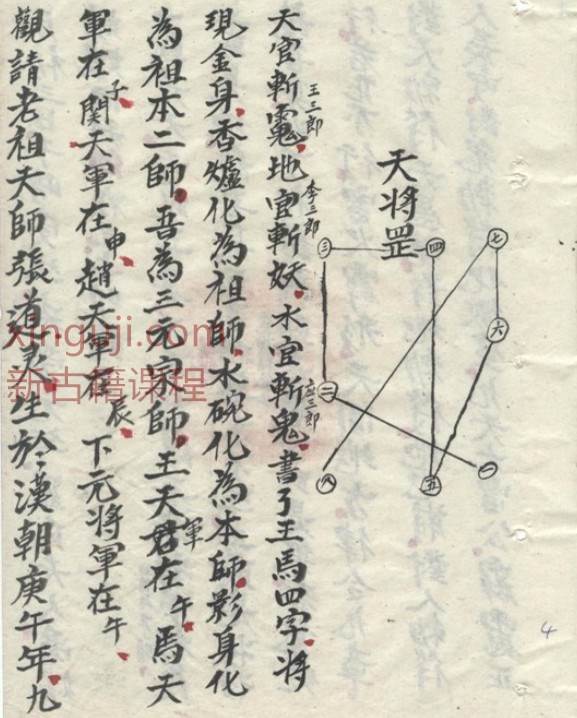 天将罡
七
四
三
六
二
一
五
八
天官斬竈地官斬妖水官斬鬼書了王馬四字将
王三郎
李三郎
应三郎
現金身香爐化為祖師水碗化為本師影身化
為祖本二師吾為三元宗師王天君在午馬天
軍
軍在子関天軍在申趙天軍在辰下元将軍在午
觀請老祖天師張道灵生於漢朝庚午年九
xinguji.com
新古籍课程
4